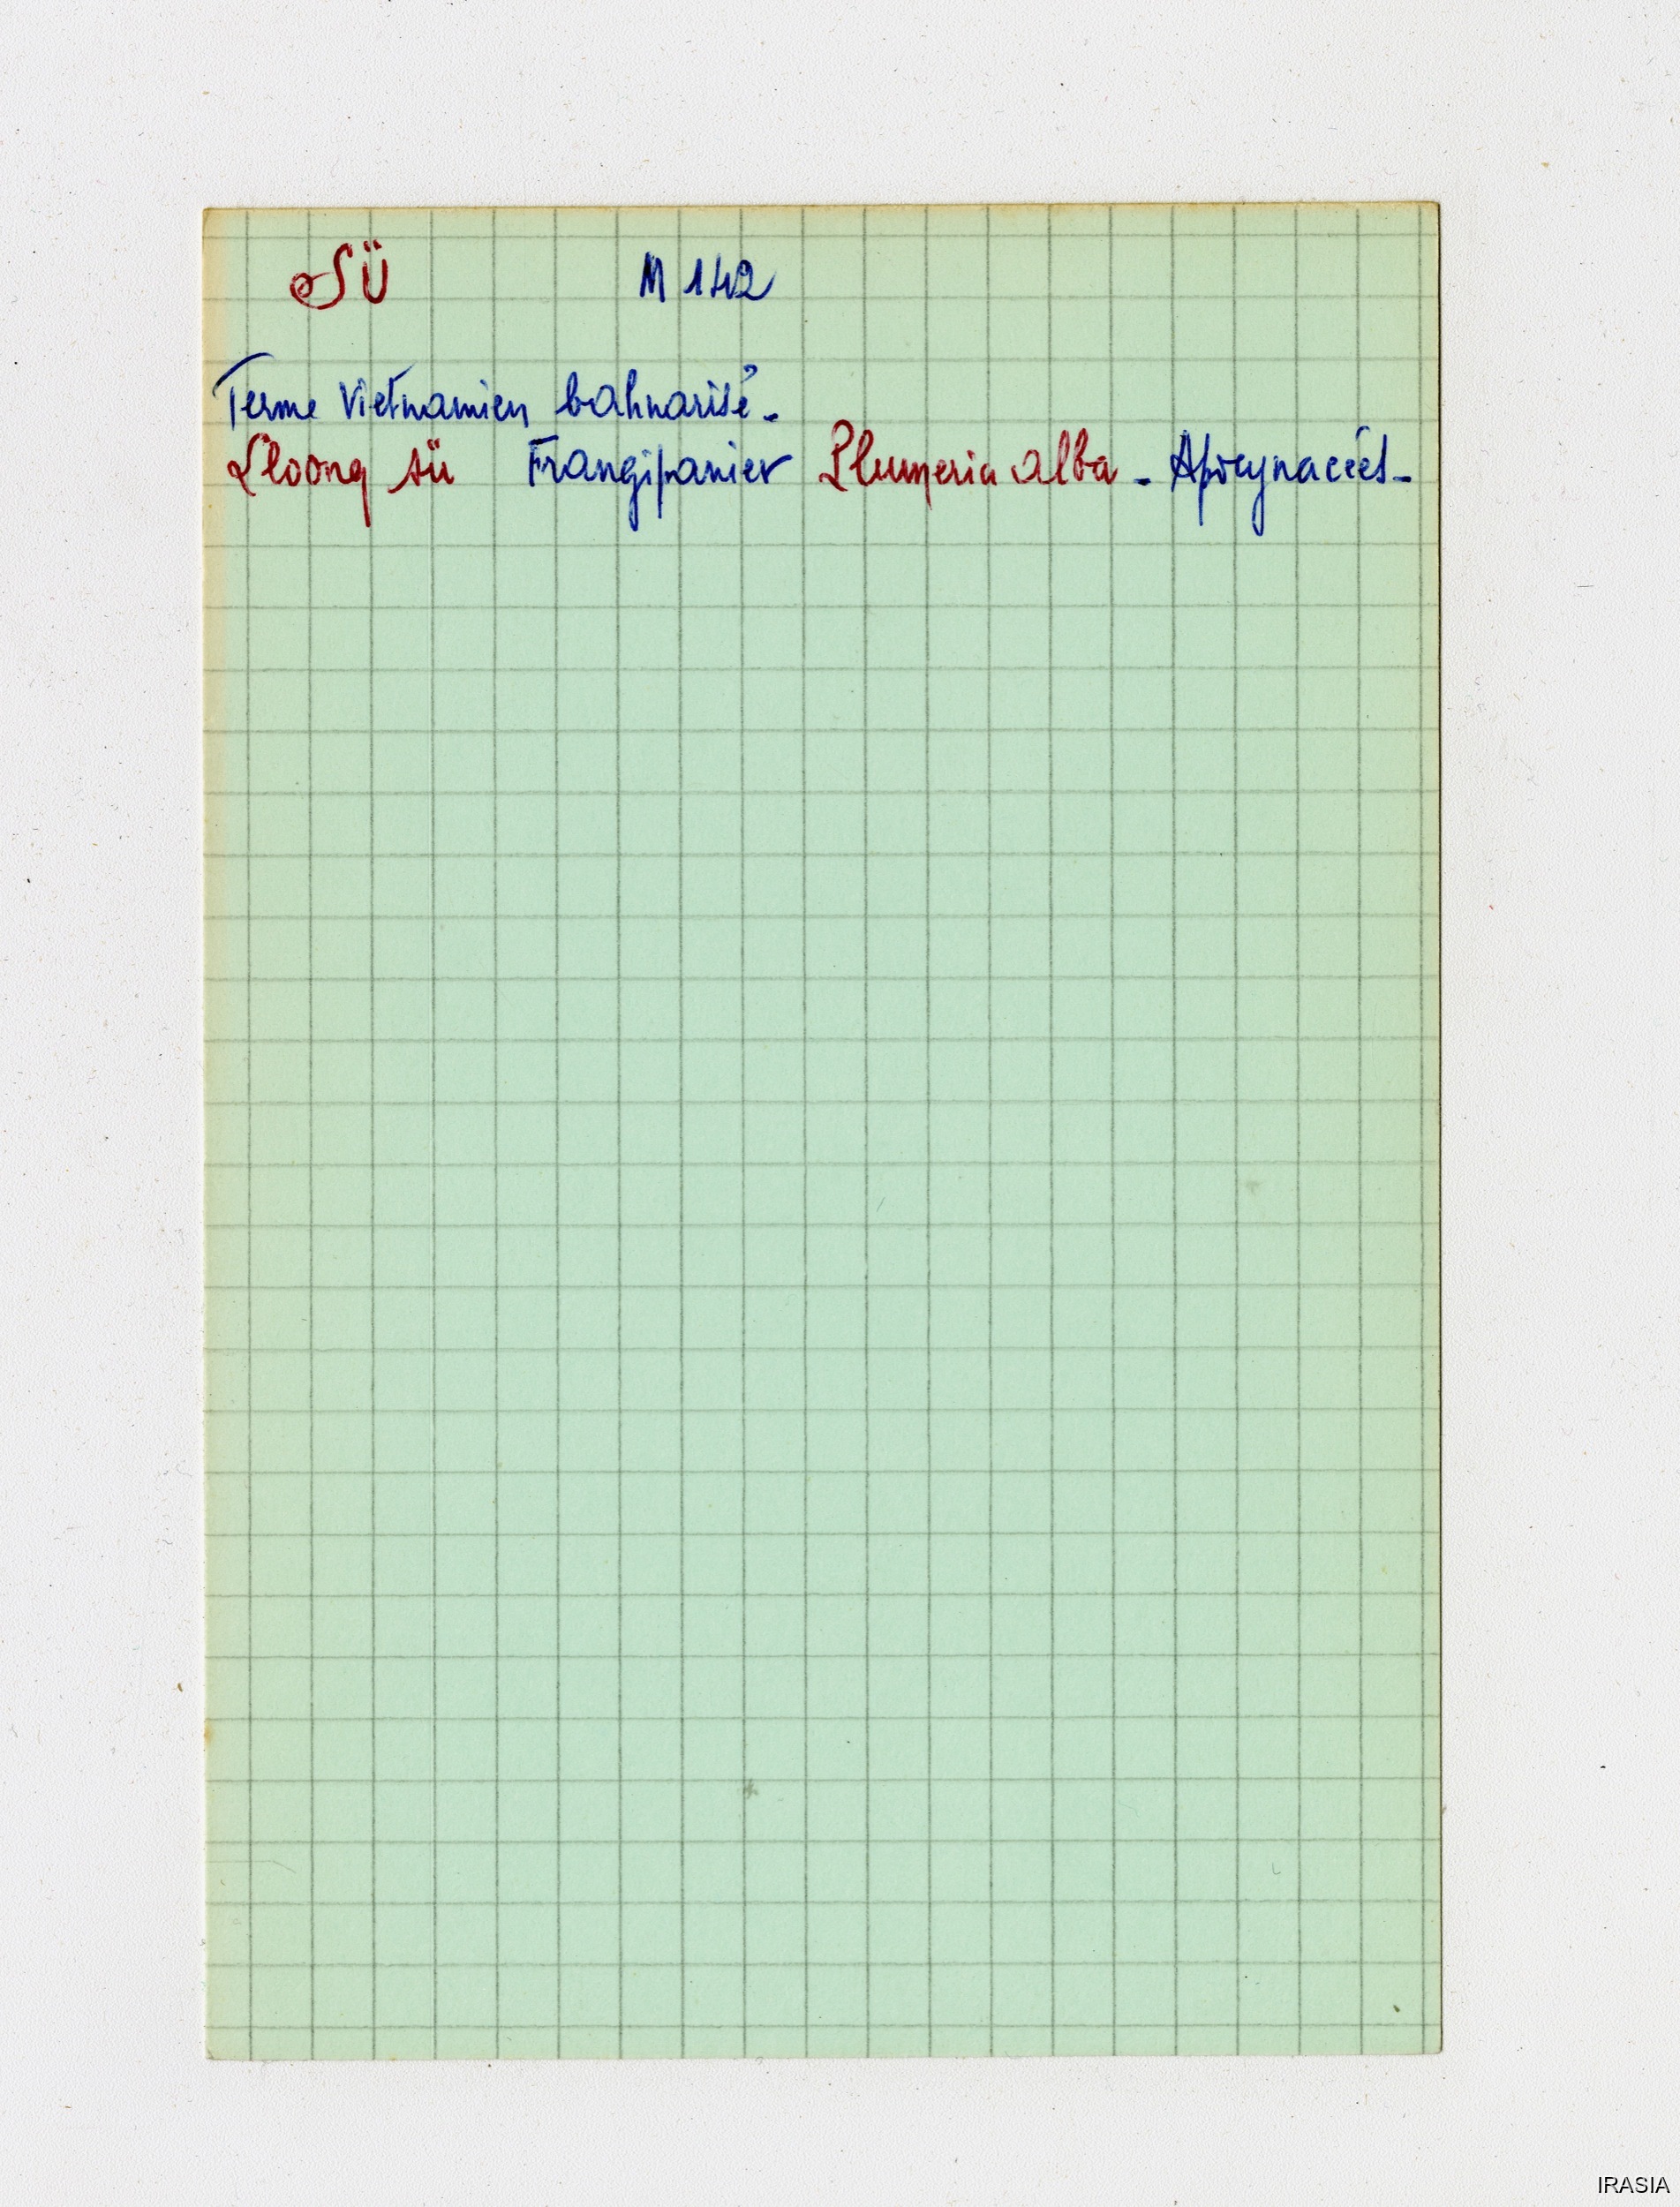 SÜ M 142
Terme Vietnamien bahnarisé -
sü Frangipanier Plumeria alba - Apocynacées -
IRASIA